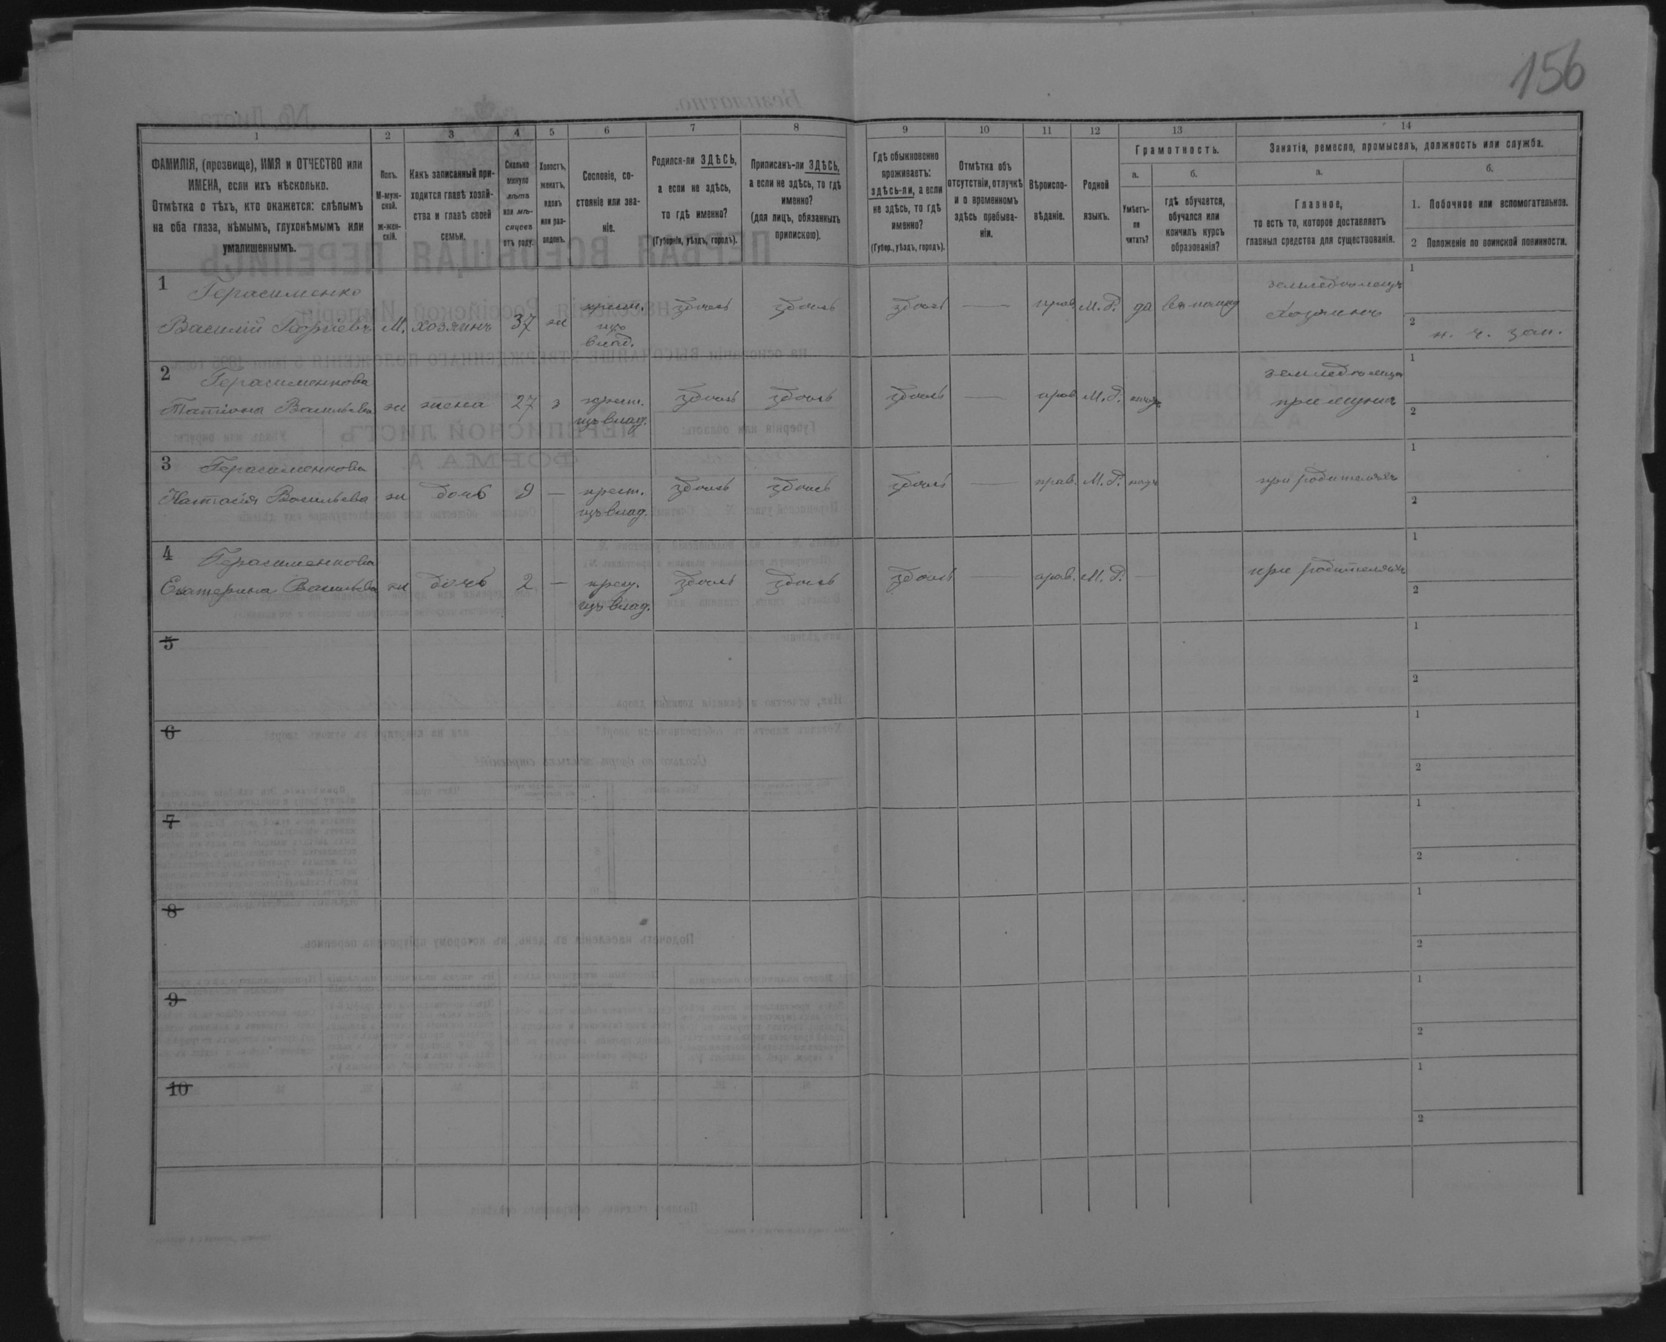 156
1
2
3
4
5
6
7
8
9
10
11
12
13
14
ФАМИЛІЯ, (прозвище), ИМЯ и ОТЧЕСТВО или
ИМЕНА, если ихъ нѣсколько.
Отмѣтка о тѣхъ, кто окажется: слѣпымъ
на оба глаза, нѣмымъ, глухонѣмымъ или
умалишеннымъ.
Полъ.
М-муж-
ской.
ж-жен-
скій.
Какъ записанный при-
ходится главѣ хозяй-
ства и главѣ своей
семьи.
Сколько
минуло
лѣтъ
или мѣ-
сяцевъ
отъ роду.
Холостъ,
женатъ,
вдовъ
или раз-
веденъ.
Сословіе, со-
стояніе или зва-
ніе.
Родился-ли ЗДѢСЬ,
а если не здѣсь,
то гдѣ именно?
(Губернія, уѣздъ, городъ).
Приписанъ-ли ЗДѢСЬ,
а если не здѣсь, то гдѣ
именно?
(для лицъ, обязанныхъ
припискою).
Гдѣ обыкновенно
проживаетъ:
здѣсь-ли, а если
не здѣсь, то гдѣ
именно?
(Губер., уѣздъ, городъ).
Отмѣтка объ
отсутствіи, отлучкѣ
и о временномъ
здѣсь пребыва-
ніи.
Вѣроиспо-
вѣданіе.
Родной
языкъ.
Грамотность.
а.
Умѣетъ-
ли
читать?
б.
гдѣ обучается,
обучался или
кончилъ курсъ
образованія?
Занятіе, ремесло, промыселъ, должность или служба.
а.
Главное,
то есть то, которое доставляетъ
главныя средства для существованія.
б.
1. Побочное или вспомогательное.
2 Положеніе по воинской повинности.
1
Герасименко
Василій
М. хозяинъ 37 ж
крест.
изъ
влад.
здѣсь здѣсь здѣсь — прав. М. Р. да
земледѣлецъ
хозяинъ
1
2 н. ч. зап.
2
Герасименкова
Татіяна Васильева ж жена 27 з
крест.
изъ влад.
здѣсь здѣсь здѣсь — прав. М. Р.
при мужѣ
1
2
3
Герасименкова
Наталія Васильева ж дочь 9 —
крест.
изъ влад.
здѣсь здѣсь здѣсь прав. М. Р.
при родителяхъ
1
2
4
Герасименкова
Екатерина Васильева ж дочь 2 —
крест.
изъ влад.
здѣсь здѣсь здѣсь прав. М. Р.
при родителяхъ
1
2
5
1
2
6
1
2
7
1
2
8
1
2
9
1
2
10
1
2